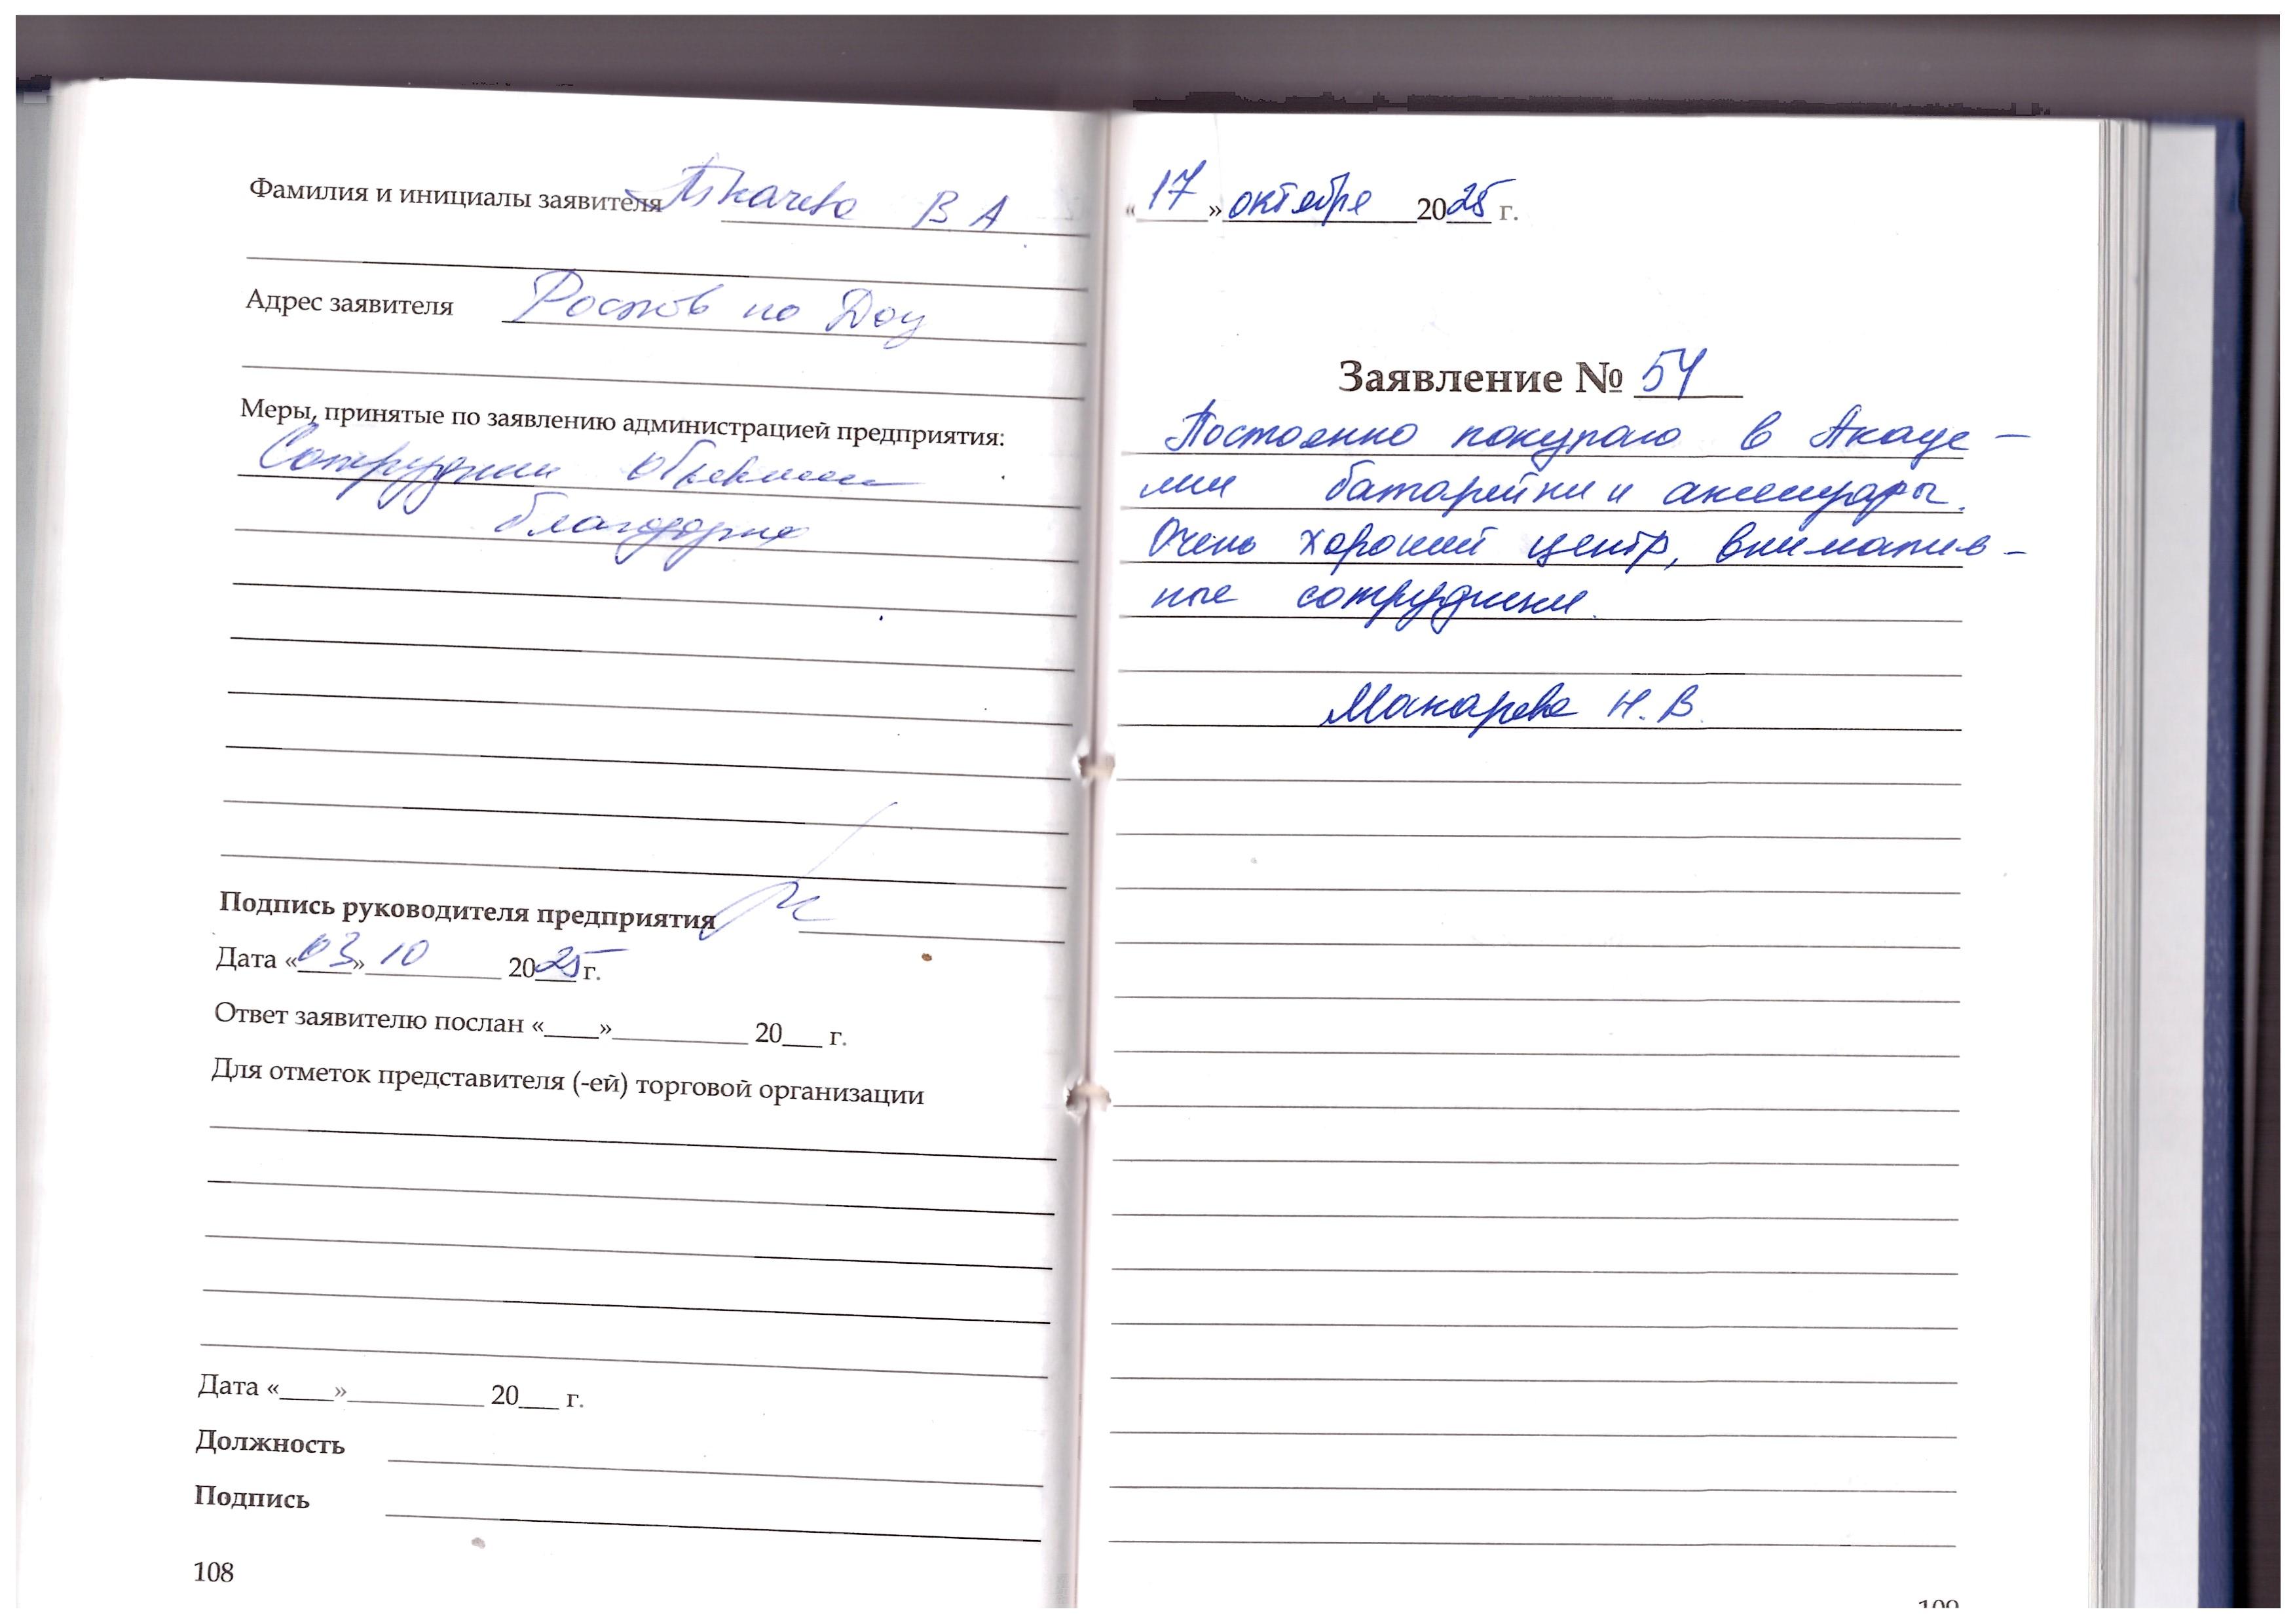 Фамилия и инициалы заявителя Ткачева В А
Адрес заявителя Ростов на Дону
Меры, принятые по заявлению администрацией предприятия:
Сотрудникам объявлена
благодарность
Подпись руководителя предприятия
Дата «03» 10 2025 г.
Ответ заявителю послан «____»__________ 20___ г.
Для отметок представителя (-ей) торговой организации
Дата «____»__________ 20___ г.
Должность
Подпись
108
«17» октября 2025 г.
Заявление № 54
Постоянно покупаю в Акаде-
мии батарейки и аксессуары.
Очень хороший центр, вниматель-
ные сотрудники.
Макарова Н.В.
109